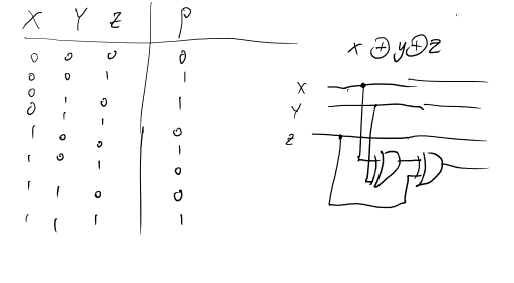 X Y Z P
0 0 0 0
0 0 1 1
0 1 0 1
0 1 1 0
1 0 0 1
1 0 1 0
1 1 0 0
1 1 1 1
x ⊕ y ⊕ z
X
Y
Z